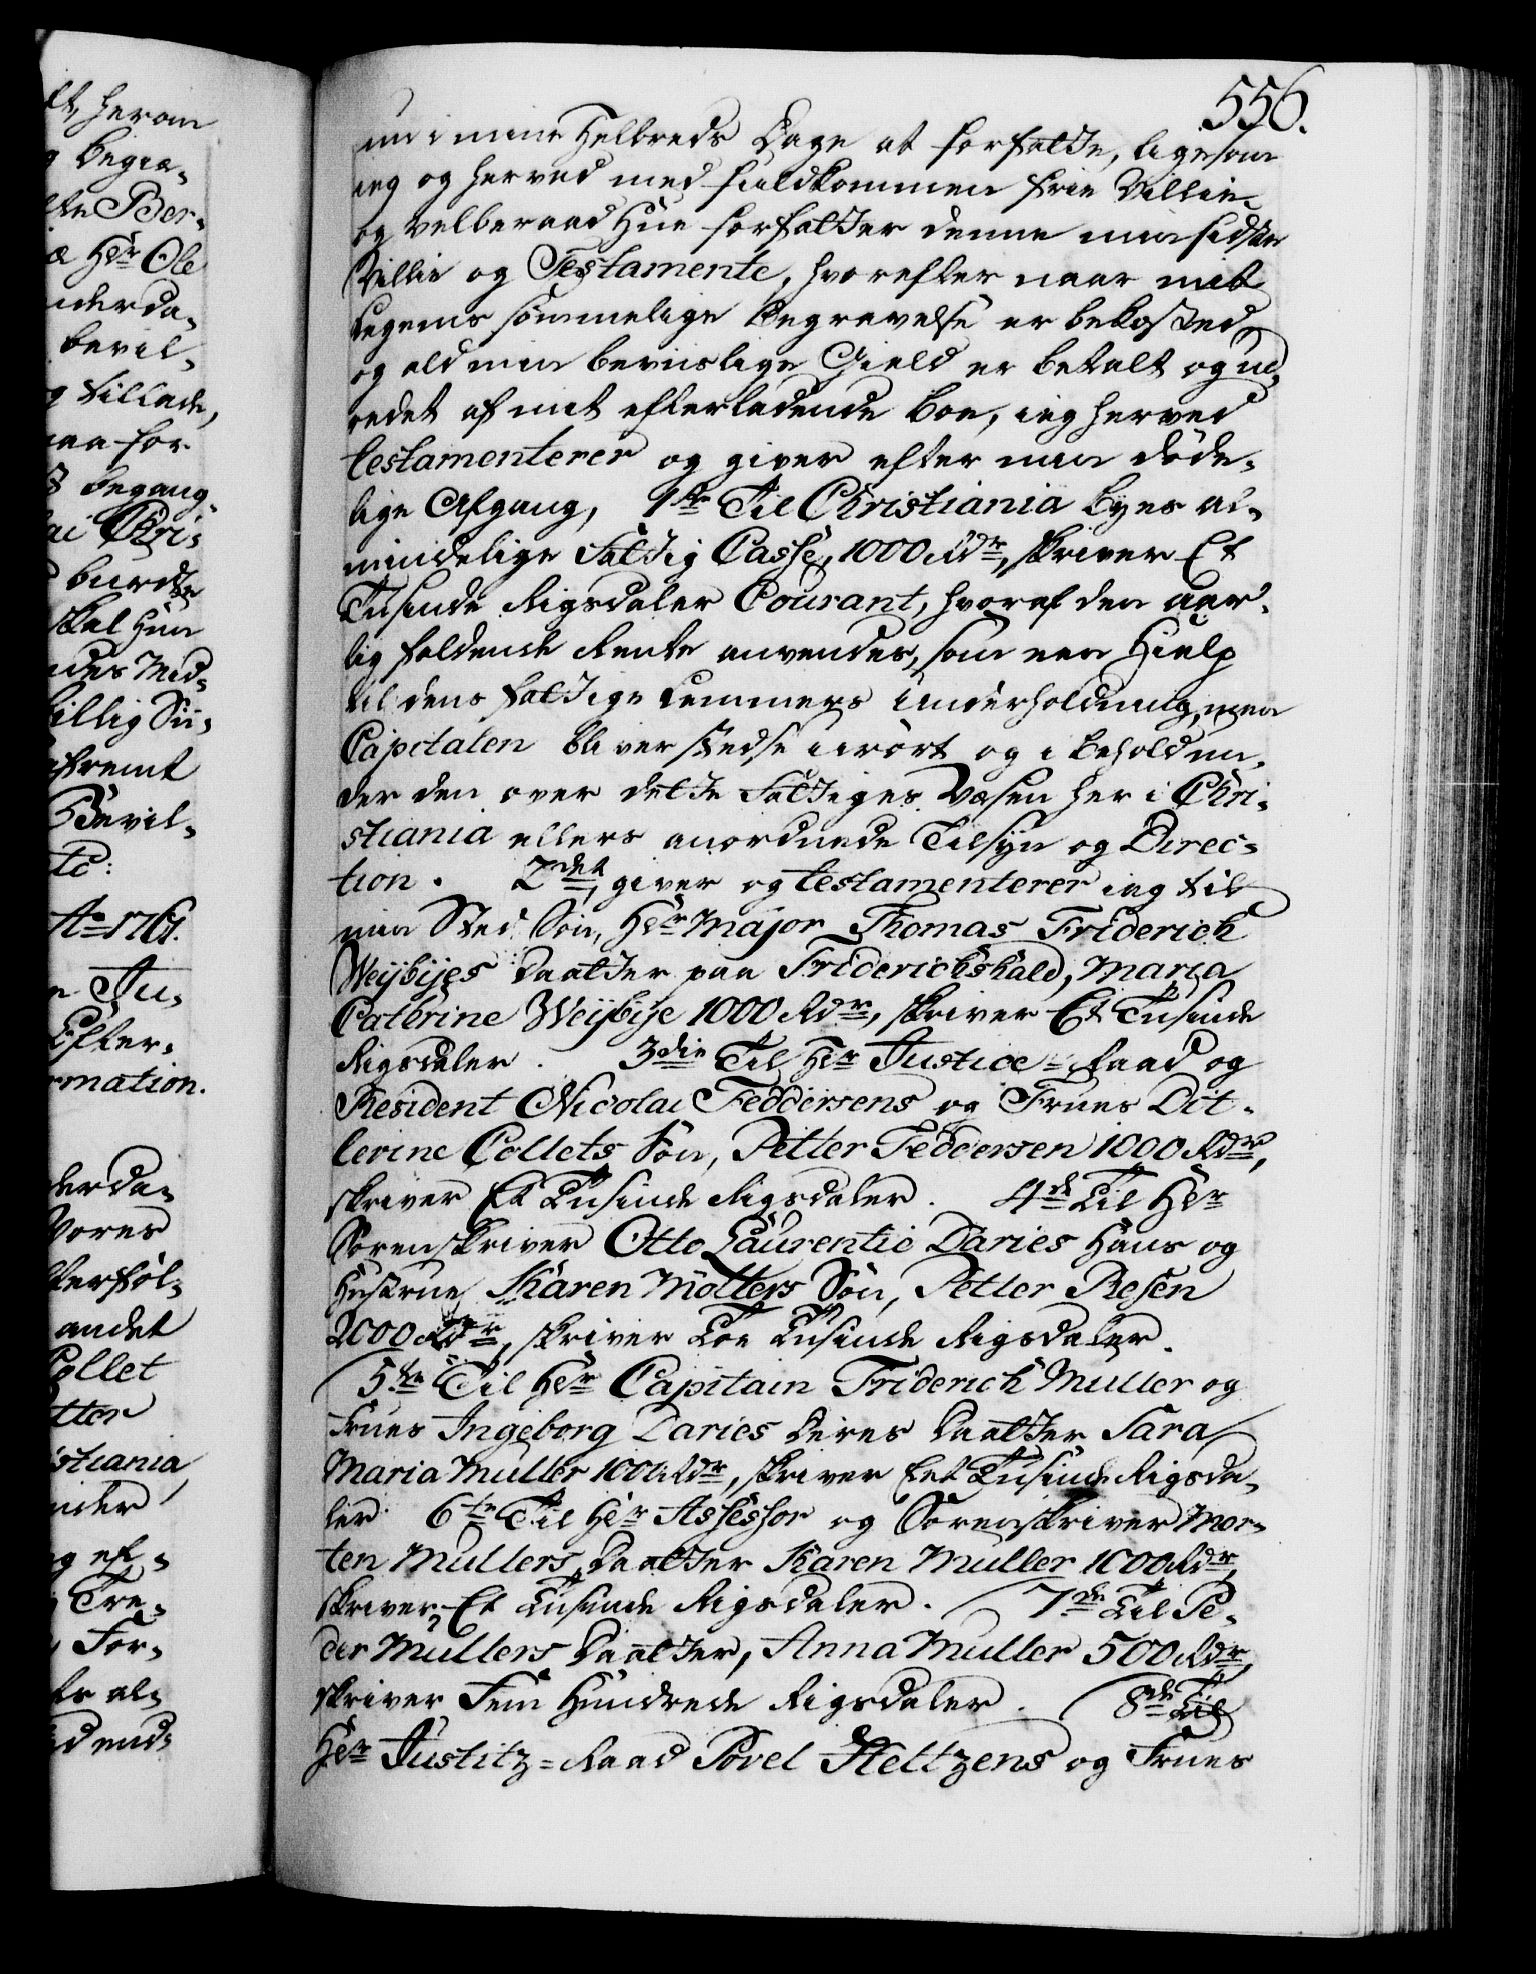 556.
nu i mine Helbreds Dage at forfatte, ligesom
ieg og herved med fuldkommen frie Villie
og velberaad Hue forfatter denne min sidste
Villie og Testamente, hvorefter naar mit
Legems sömmelige Begravelse er bekosted,
og ald min beviislige Gield er betalt og ud-
redet af mit efterladende Boe, ieg herved
testamenterer og giver efter min döde-
lige Afgang, 1ste Til Christiania Byes al-
mindelige Fattig Casse, 1000 Rdr, skriver Et
Tusinde Rigsdaler Courant, hvoraf den aar-
lig faldende Rente anvendes, som een Hielp
til dens fattige Lemmers Underholdning, men
Capitalen bliver stedse uurört og i beholden,
der den over dette Fattiges Væsen her i Chri-
stiania ellers anordnede Tilsyn og Direc-
tion. 2det, giver og testamenterer ieg til
min Sted Sön, Hr Major Thomas Friderich
Weybyes Daatter paa Friderichshald, Maria
Cathrine Weybye 1000 Rdr, skriver Et Tusinde
Rigsdaler. 3die Til Hr Justice-Raad og
President Nicolai Feddersens og Frues Dit-
levine Collets Sön, Petter Feddersen 1000 Rdr,
skriver Et Tusinde Rigsdaler. 4de Til Hr
Sorenskriver Otto Laurentie Daries Hans og
Hustrue Karen Molters Sön, Petter Resen
2000 Rdr, skriver Toe Tusinde Rigsdaler.
5te Til Hr Capitain Friderich Muller og
Frues Ingeborg Daries deres Daatter Sara
Maria Muller 1000 Rdr, skriver Eet Tusinde Rigsda-
ler. 6te Til Hr Assessor og Sorenskriver Mor-
ten Mullers Daatter Karen Muller 1000 Rdr,
skriver Et Tusinde Rigsdaler. 7de Til Pe-
der Mullers Daatter, Anna Muller 500 Rdr,
skriver Fem Hundrede Rigsdaler. 8de Til
Hr Justitz-Raad Povel Heltzens og Frues